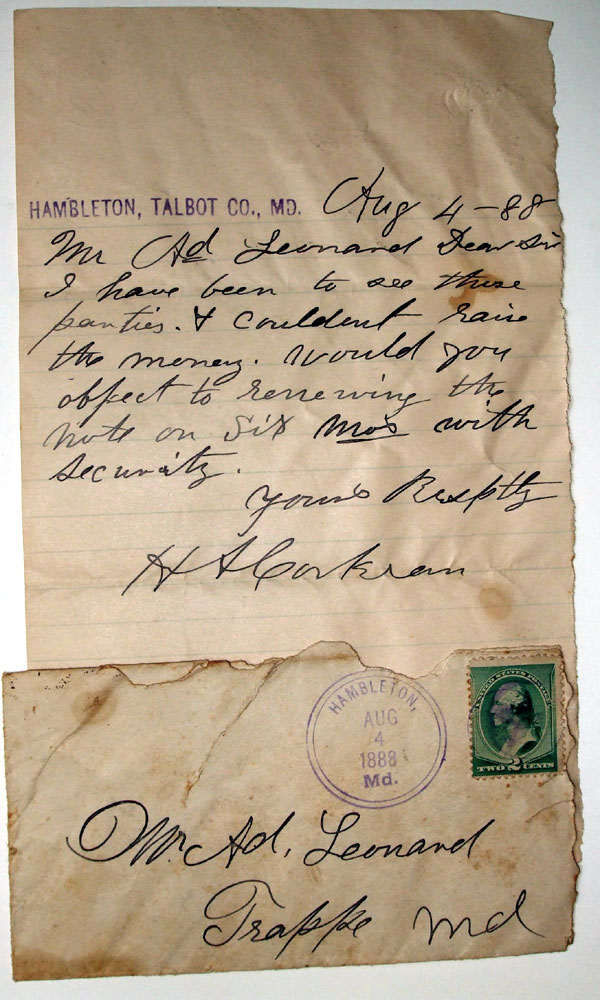 HAMBLETON, TALBOT CO., MD. Aug 4-88
Mr Ad Leonard Dear Sir
I have been to see those
parties. & couldent raise
the money. Would you
object to renewing the
note on Six mos with
security.
Yours Resptly
H S Corkran
HAMBLETON,
AUG
4
1888
Md.
UNITED STATES POSTAGE
TWO 2 CENTS
Mr. Ad. Leonard
Trappe Md